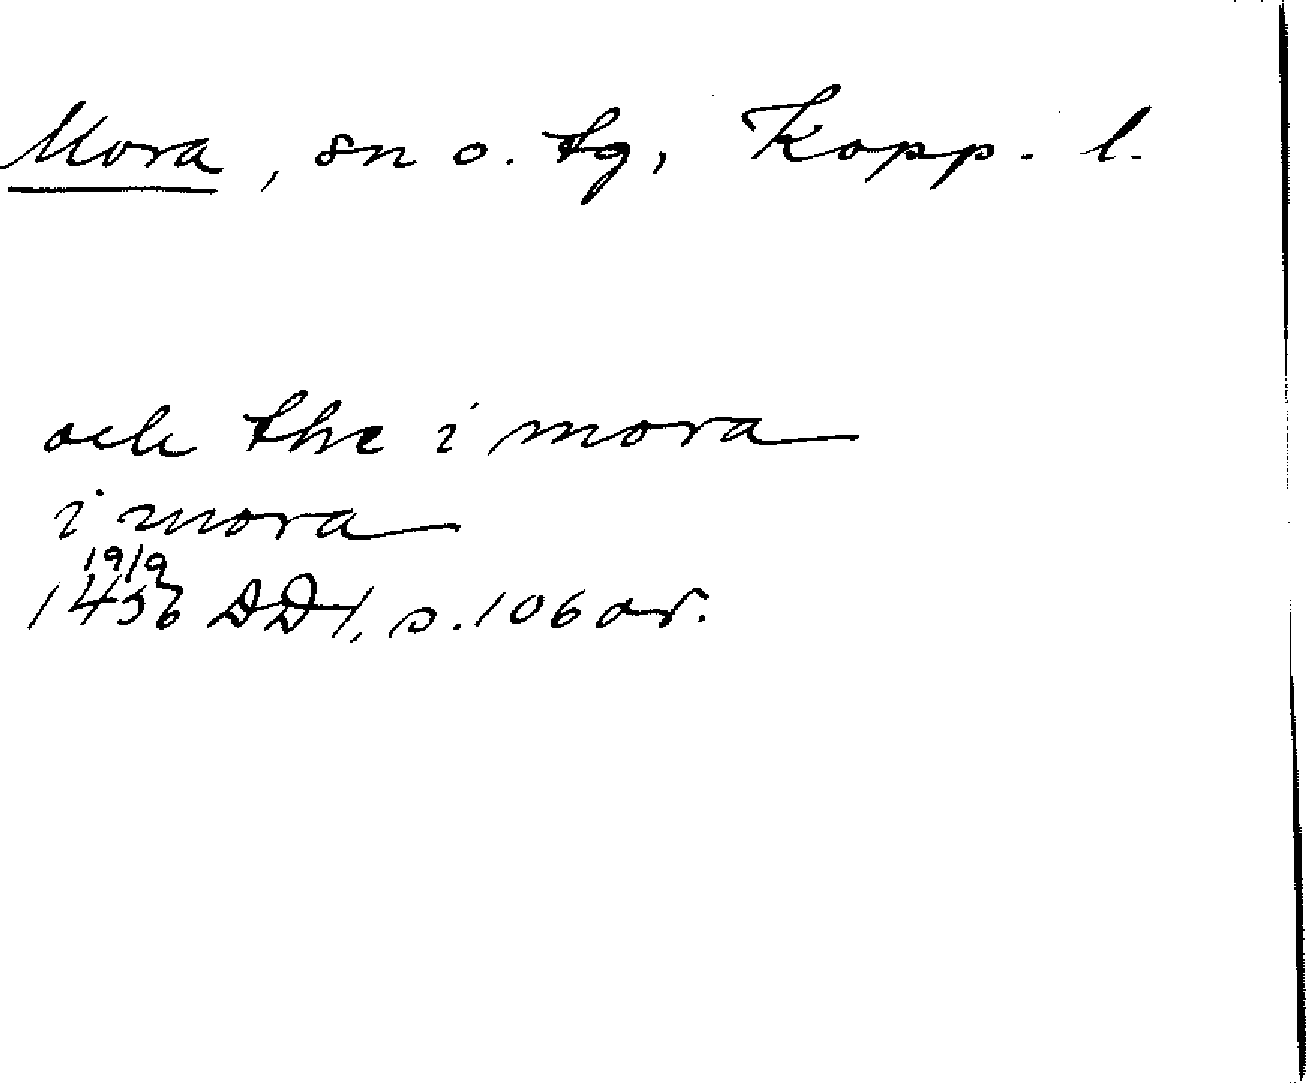 Mora, sn o. tg, Kopp. l.
och the i mora
i mora
19/9
1456 DD1, s. 106 or.